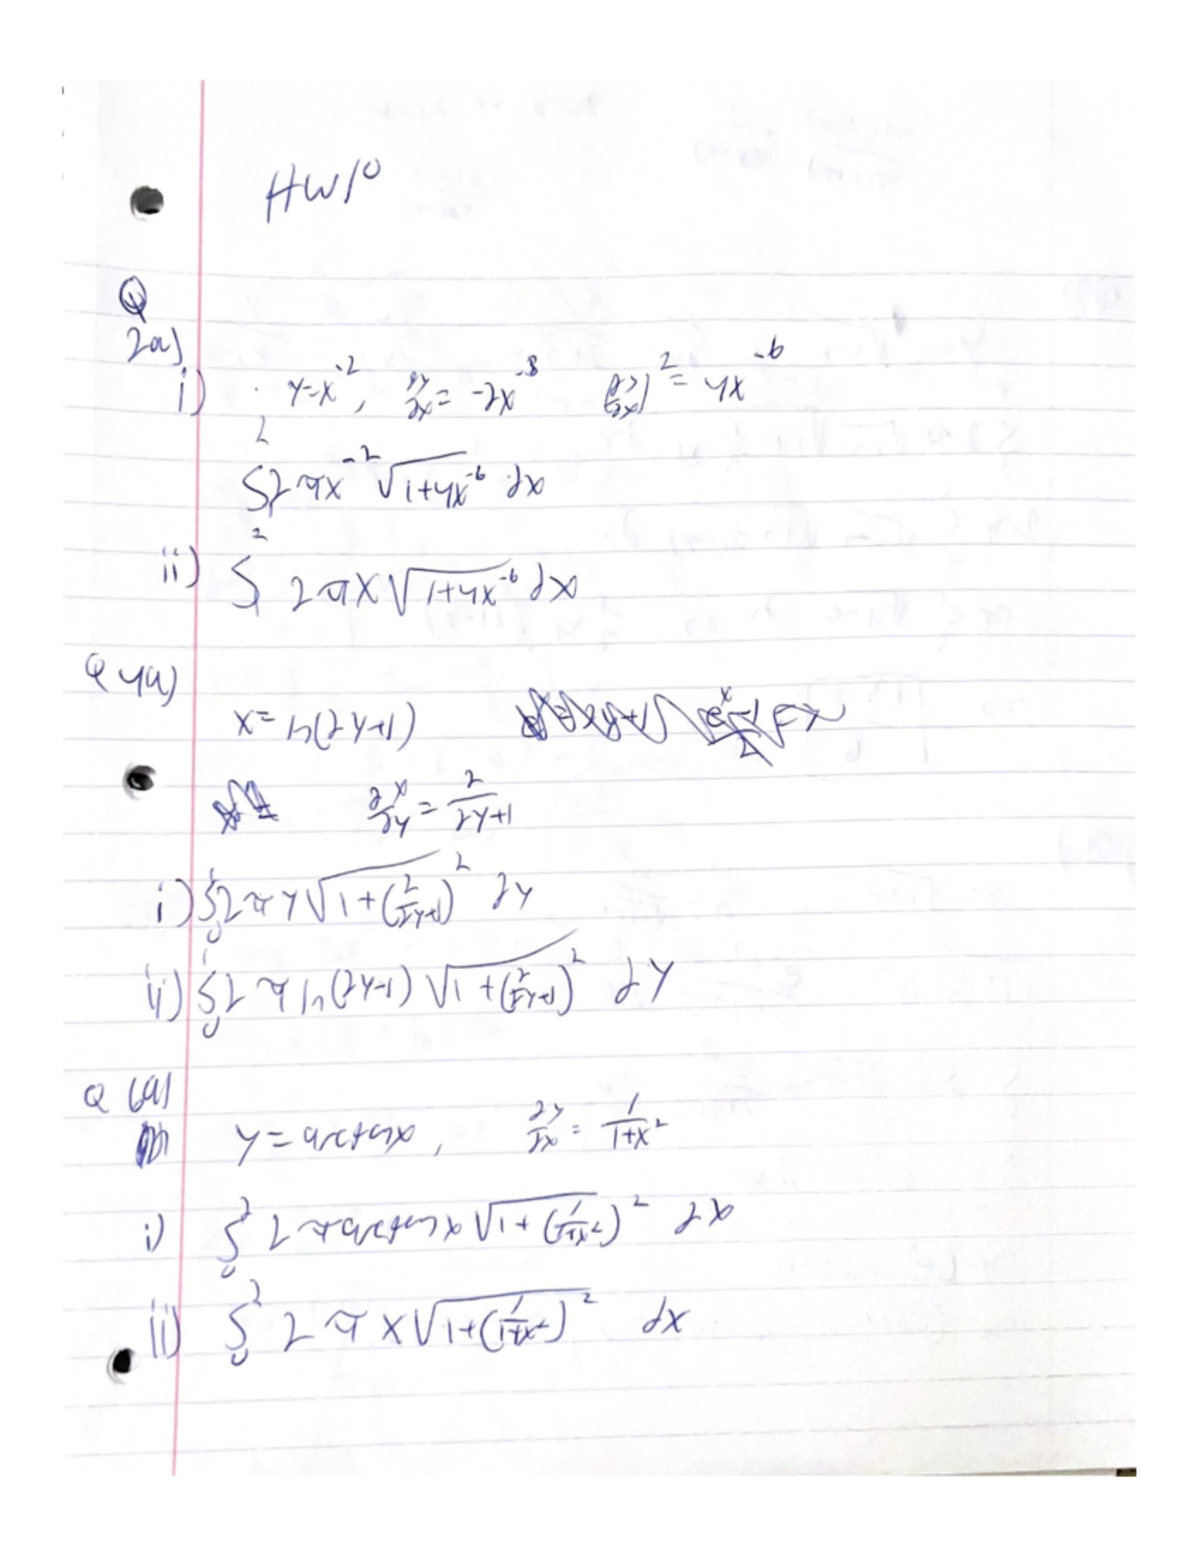 HW10
Q
2a)
i) y=x^-2, dy/dx = -2x^-3 (dy/dx)^2 = 4x^-6
∫_1^2 2πx^-2 √(1+4x^-6) dx
ii) ∫_1^2 2πx √(1+4x^-6) dx
Q 4a)
x = ln(2y+1)
dx/dy = 2/(2y+1)
i) ∫_0^1 2πy √(1+(2/(2y+1))^2) dy
ii) ∫_0^1 2π ln(2y+1) √(1+(2/(2y+1))^2) dy
Q 6a)
y = arctanx, dy/dx = 1/(1+x^2)
i) ∫_0^2 2π arctanx √(1+(1/(1+x^2))^2) dx
ii) ∫_0^2 2πx √(1+(1/(1+x^2))^2) dx